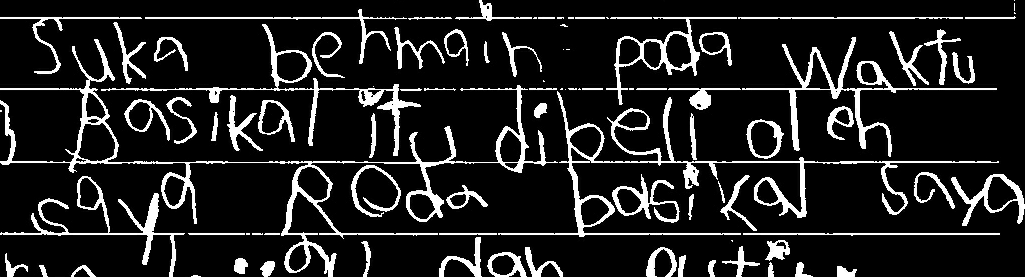 Suka behmain pada Waktu
Basikal itu dibeli oleh
saya Roda basikal saya
dan